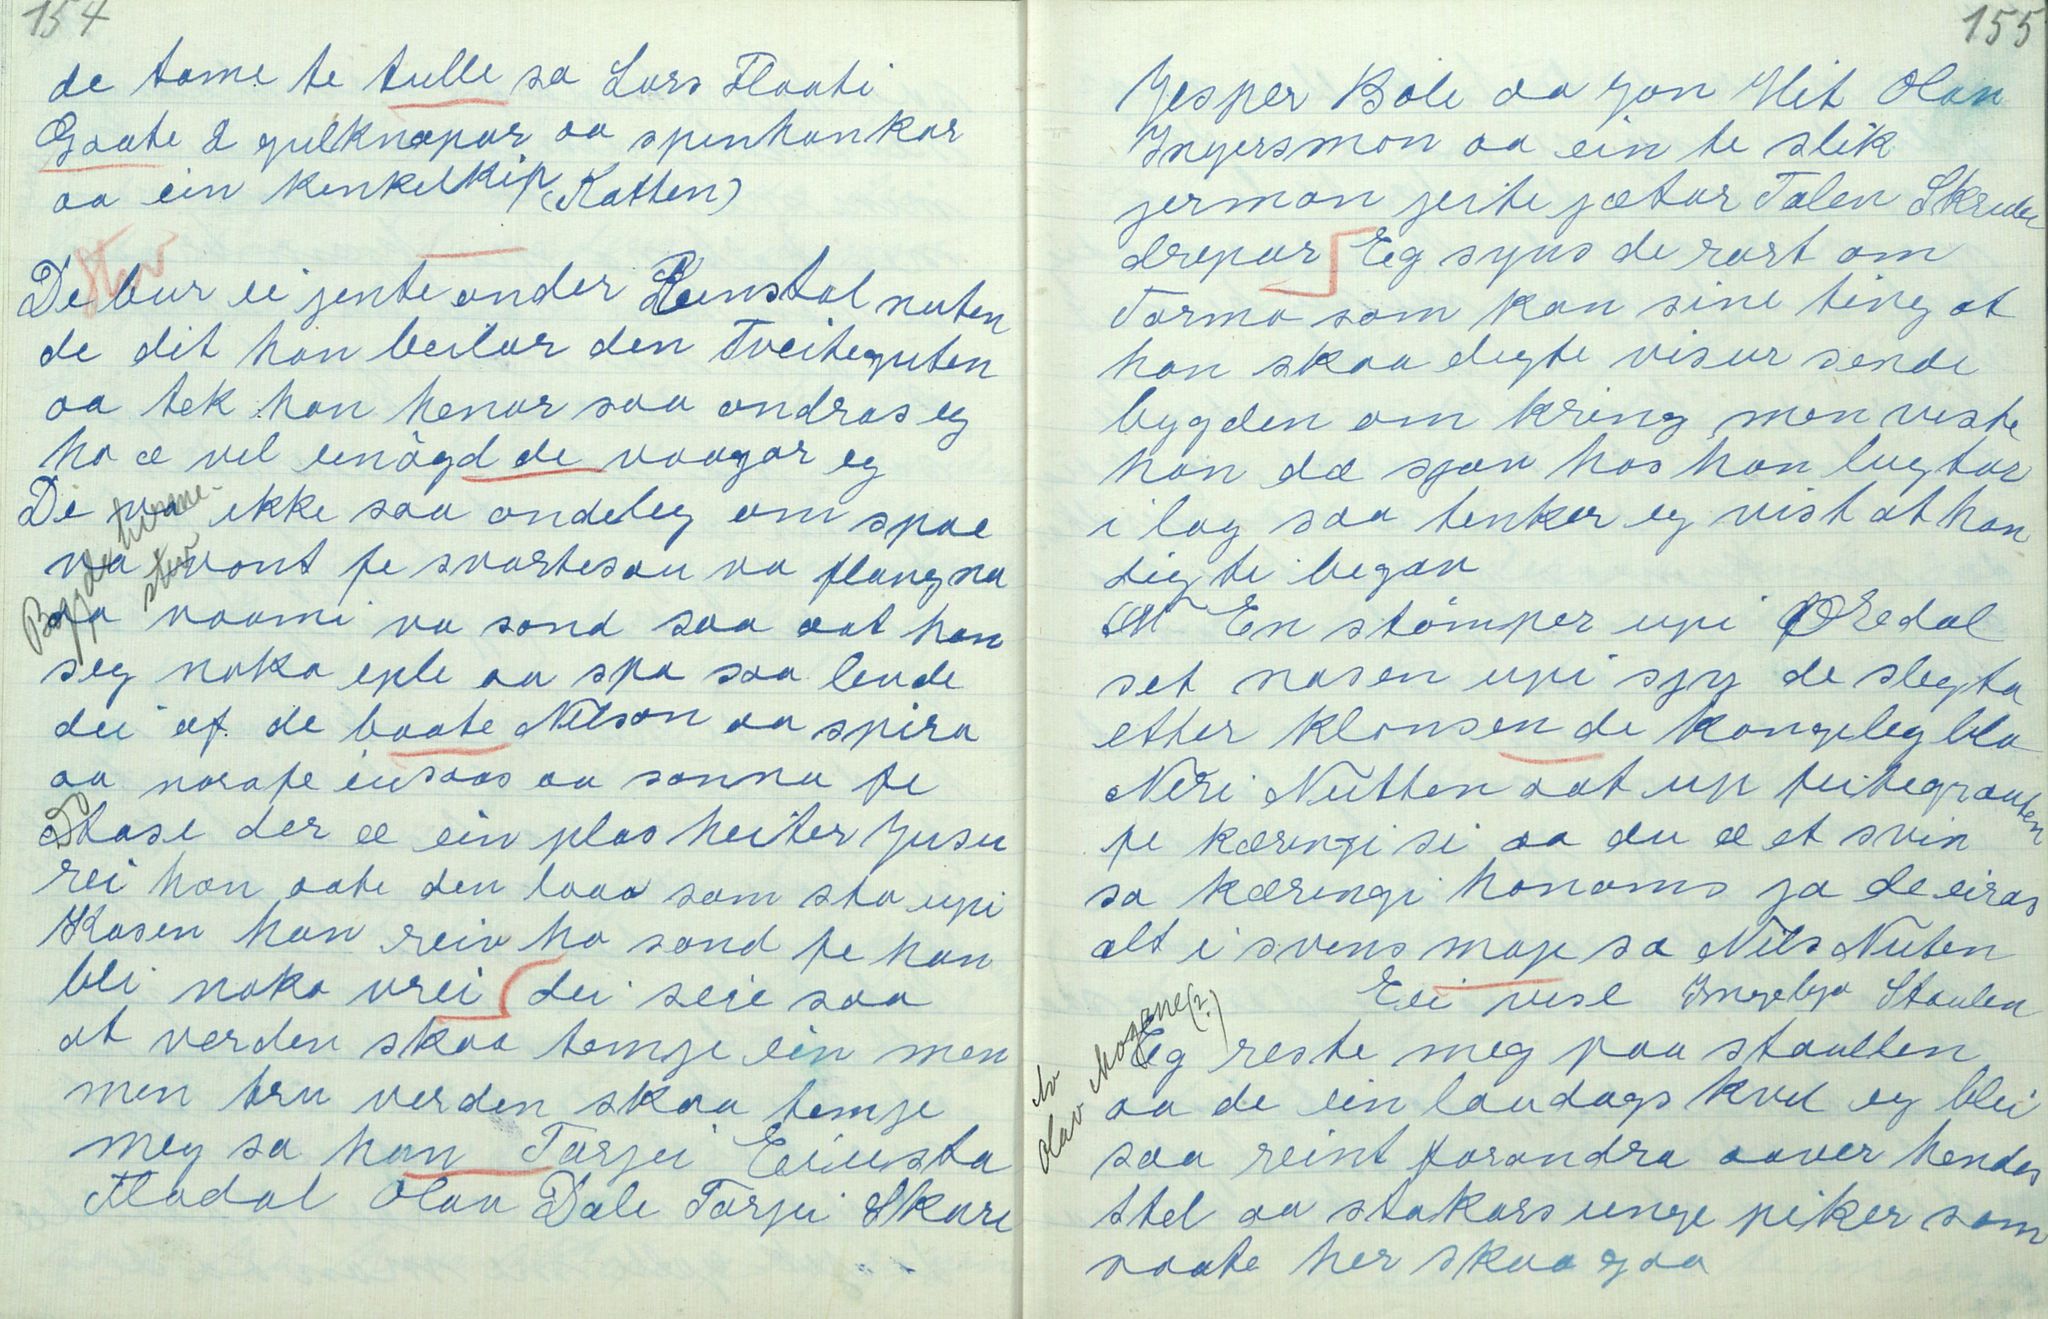 154
de tome te tulle sa Lars Flaati
Gaate 2 gulknapar aa spenhankar
aa ein kenkelkip (Katten)
Stev
De bur ei jente onder Reinstol nuten
de dit han beilar den Tveiteguten
aa tek han henar saa ondras eg
ho æ vel einögd de vaagar eg
De va ikke saa ondeleg om spae
va vont fe svartesau va flang na
aa vaami va sond saa aat han
seg noko eple aa spa saa levde
dei af de baate Nilson aa spira
aa norafe einsaas aa sonna fe
Stase der æ ein plas heiter Jusu
rei han aate den laaa som sto upi
Kasen han reiv ho sond fe han
blei noko vrei dei seie saa
at verden skaa temje ein men
men tru verden skaa temje
meg sa han Tarjei Eiiusta
Fladal Olaa Dale Tarjei Skare
Bygdetussene-
stev
155
Jesper Bole aa Jon Hit Olav
Ingersmon aa ein te slik
jermon jeite jætar Talen Skrede
drepar Eg syns de rart om
Tarmo som kan sine ting at
han skaa digte visur sende
bygden om kring men viste
han dæ sjøv hos han lugtar
i lag saa tenker eg vist at han
digte begav
En stömper upi Øredal
set nasen upi sjy de slegta
etter klonsen de kongeleg bla
Neri Nutten aat up feitegrauten
fe kæringi si aa du æ et svin
sa kæringi honoms ja de eiras
alt i svens mage sa Nils Nuten
Ei vise Ingebjø Staulen
Eg reste meg paa staullen
aa de ein laudags kvel eg blei
saa reint forandra aaver hendes
stel aa stakars unge piker som
vaate her skaa gaa
Av
Olav Mogane (?)